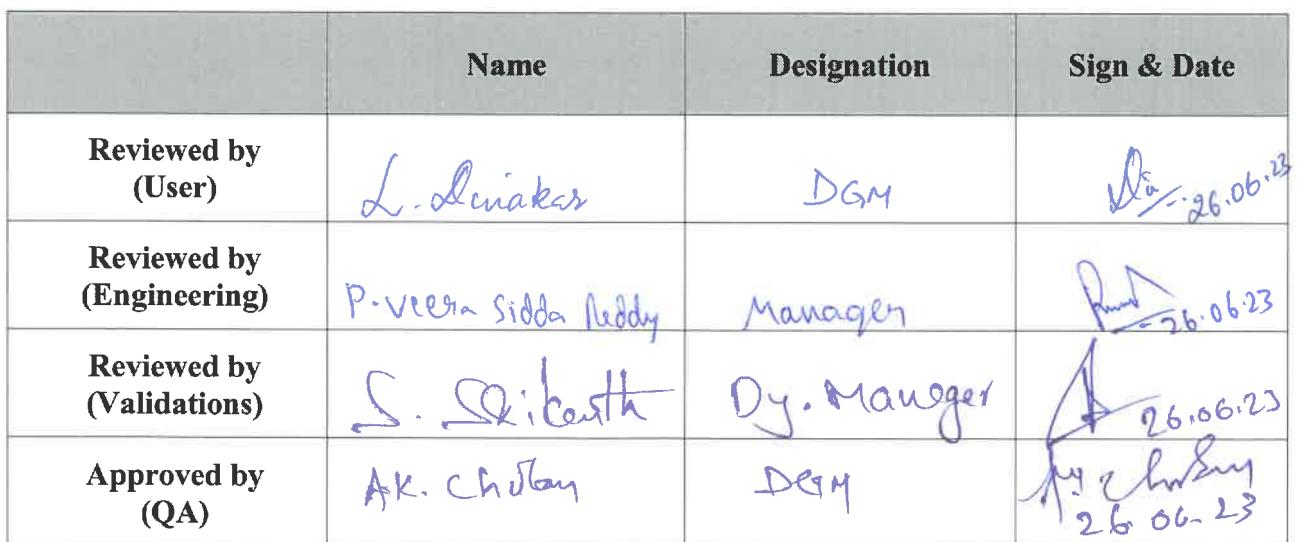 Name Designation Sign & Date
Reviewed by
(User)
L. Dinakar DGM 26.06.23
Reviewed by
(Engineering)
P. Veera Sidda Reddy Manager 26.06.23
Reviewed by
(Validations)
S. Srikanth Dy. Manager 26.06.23
Approved by
(QA)
AK. DGM
26.06.23